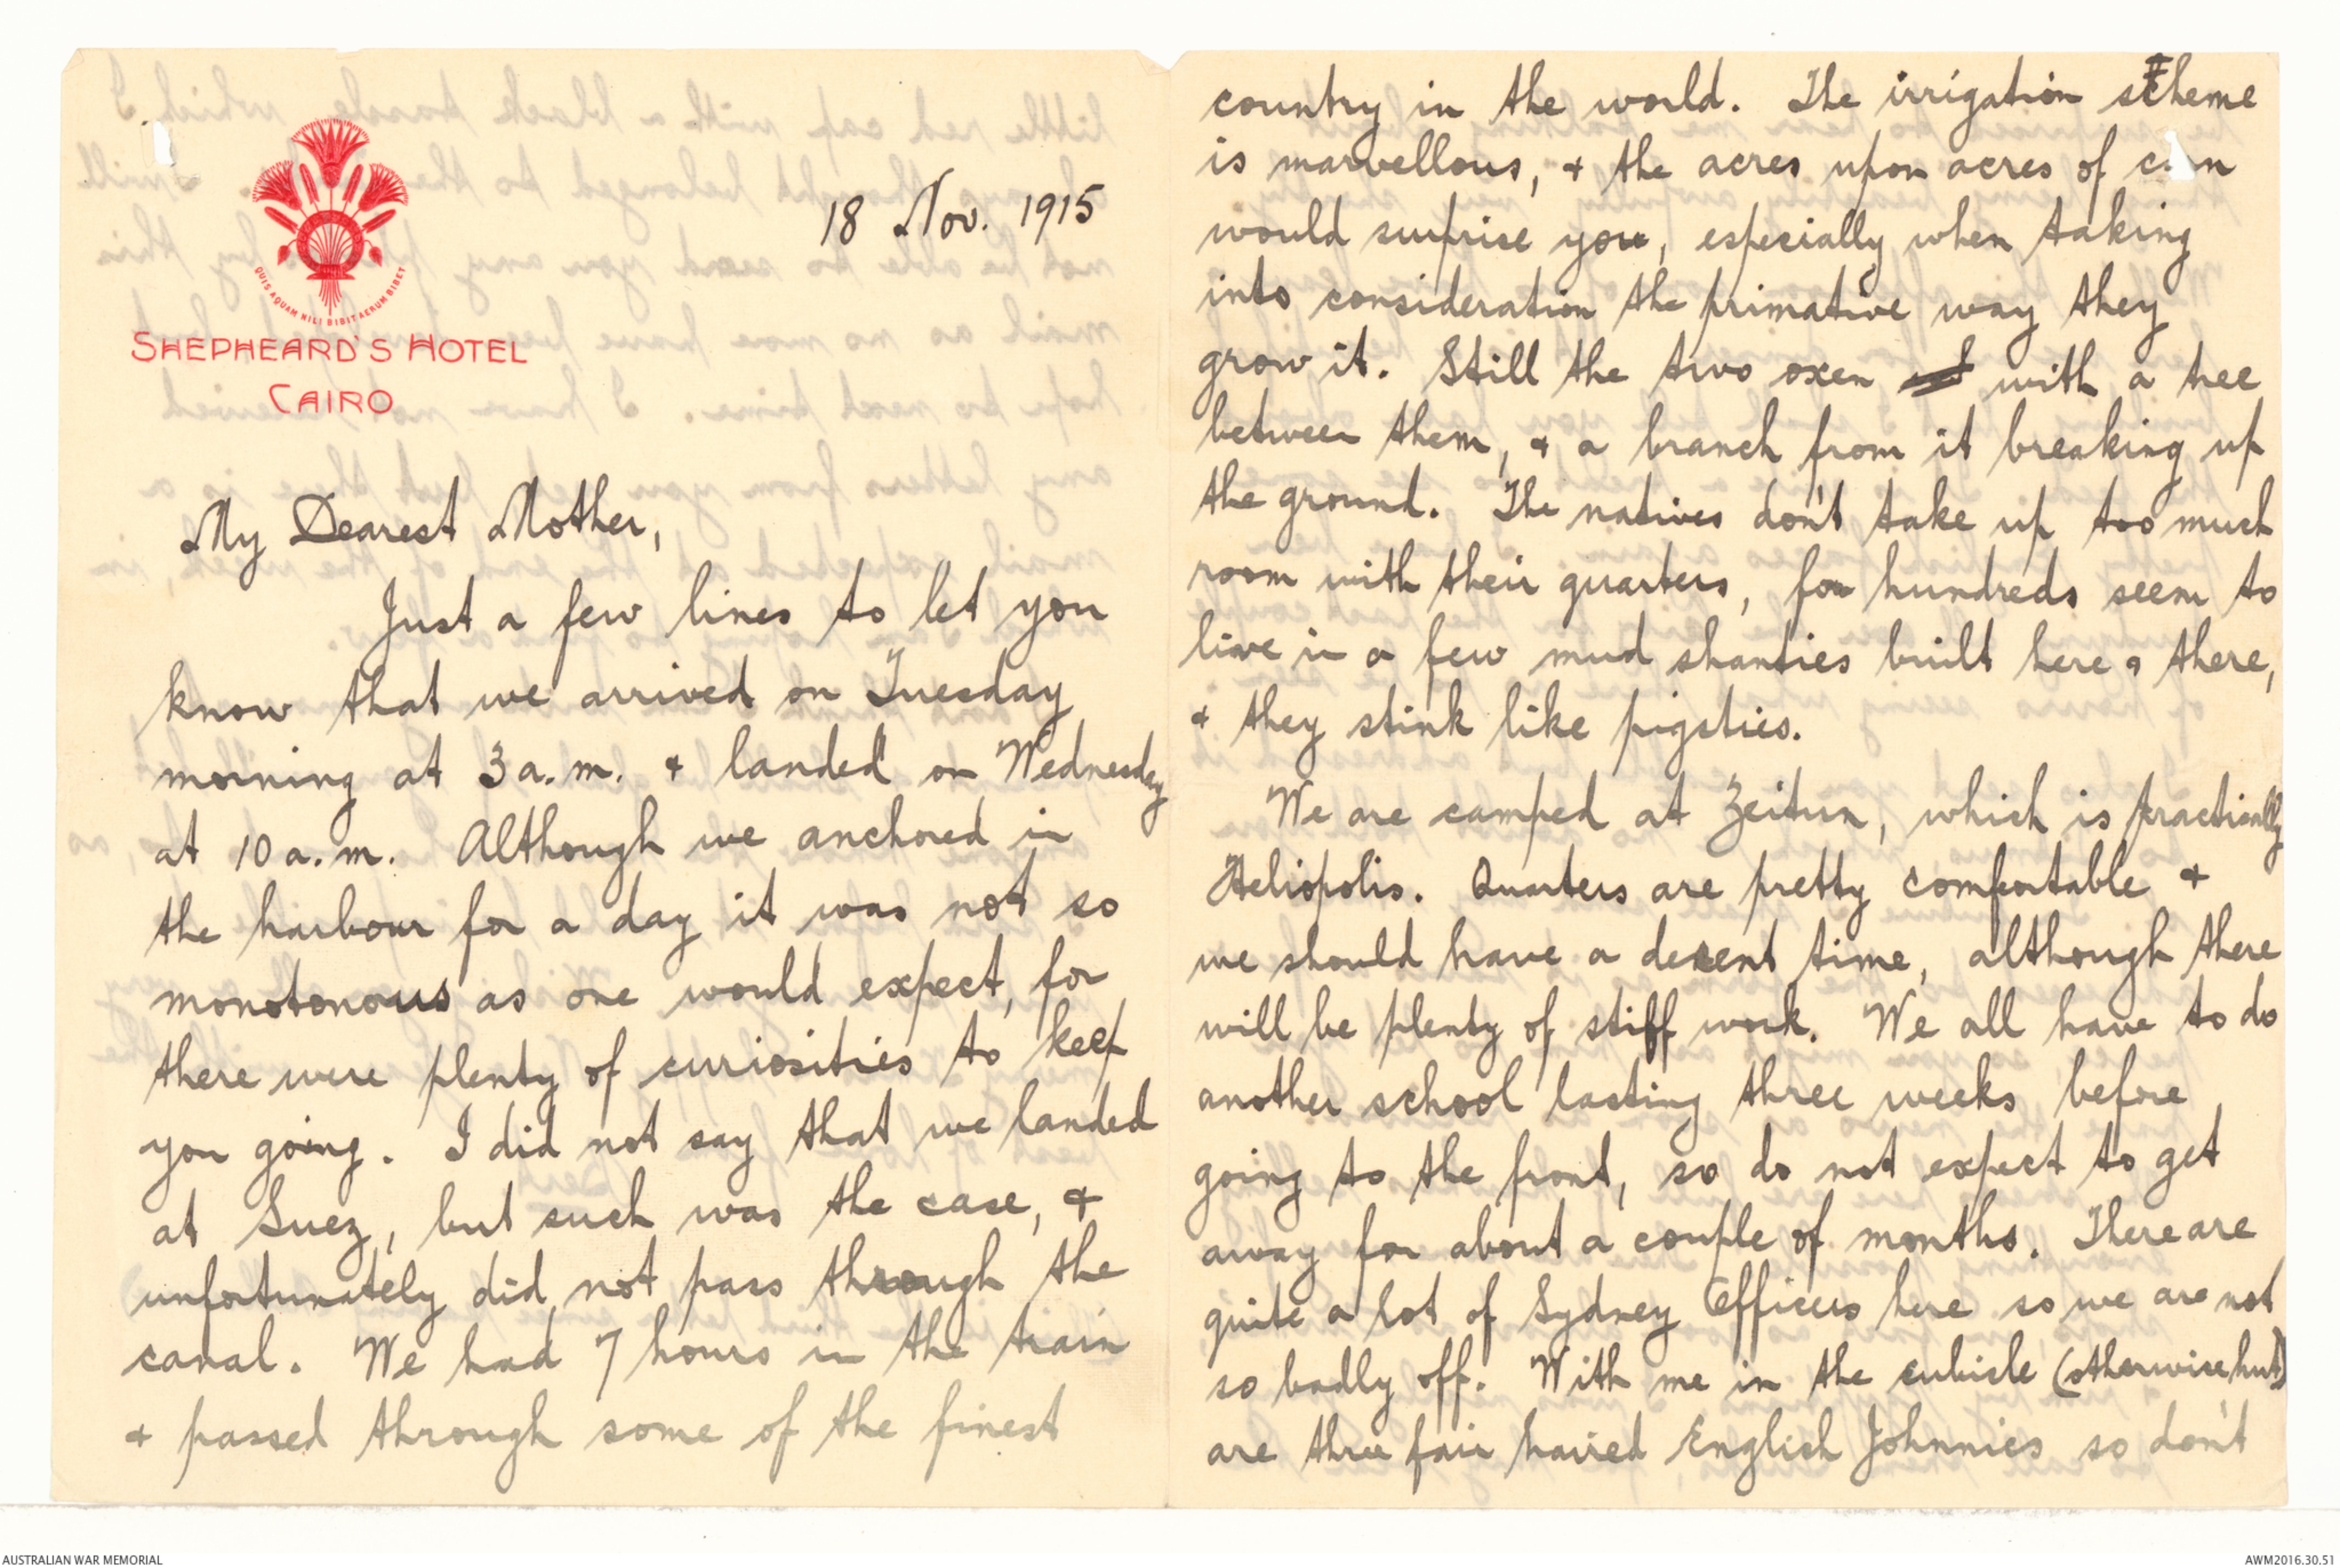 QUIS AQUAM NILI BIBIT AERUM BIBET
SHEPHEARD'S HOTEL
CAIRO
18 Nov. 1915
My Dearest Mother,
Just a few lines to let you
know that we arrived on Tuesday
morning at 3 a.m. & landed on Wednesday
at 10 a.m. Although we anchored in
the harbour for a day it was not so
monotonous as one would expect, for
there were plenty of curiosities to keep
you going. I did not say that we landed
at Suez, but such was the case, &
unfortunately did not pass through the
canal. We had 7 hours in the train
& passed through some of the finest
country in the world. The irrigation scheme
is marvellous, & the acres upon acres of
would surprise you, especially when taking
into consideration the primative way they
grow it. Still the two oxen with a tree
between them, & a branch from it breaking up
the ground. The natives don't take up too much
room with their quarters, for hundreds seem to
live in a few mud shanties built here & there,
& they stink like pigsties.
We are camped at Zeitun, which is practically
Heliopolis. Quarters are pretty comfortable &
we should have a decent time, although there
will be plenty of stiff work. We all have to do
another school lasting three weeks before
going to the front, so do not expect to get
away for about a couple of months. There are
quite a lot of Sydney Officers here so we are not
so badly off. With me in the cubicle (otherwise hut)
are three fair haired English Johnnies so don't
AUSTRALIAN WAR MEMORIAL
AWM2016.30.51